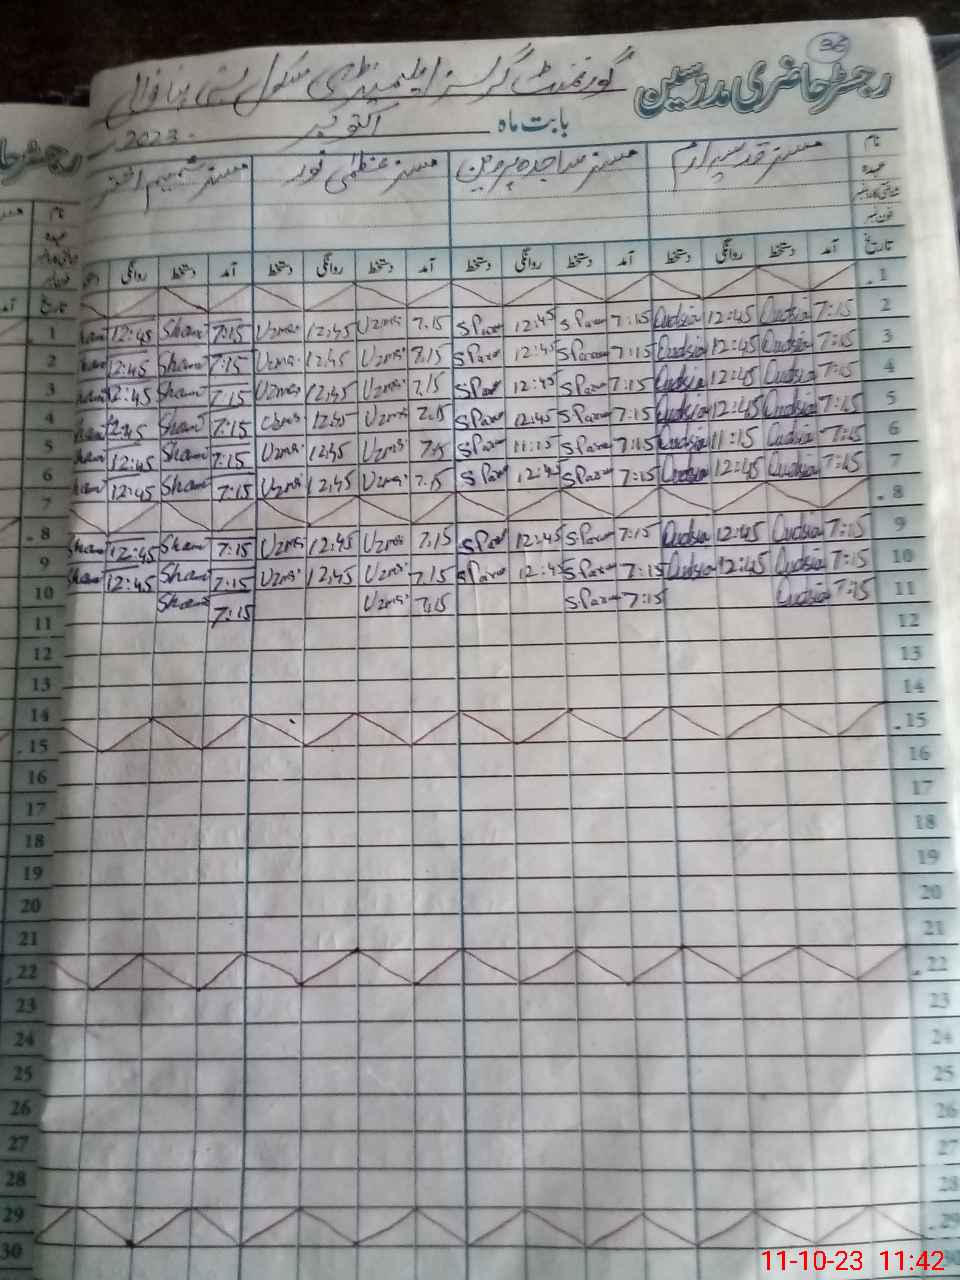 36
رجسٹر حاضری مدرسین گورنمنٹ گرلز ایلیمنٹری سکول بستی
بابت ماہ اکتوبر 2023
نام مسز قدسیہ ارم مسز ساجدہ پروین مسز عظمیٰ نور مسز شمیم اختر
عہدہ
شناختی کارڈ نمبر
فون نمبر
تاریخ آمد دستخط روانگی دستخط آمد دستخط روانگی دستخط آمد دستخط روانگی دستخط آمد دستخط روانگی
1
2 7:15 Qudsia 12:45 Qudsia 7:15 S Par 12:45 S Par 7.15 Uzma 12,45 Uzma 7:15 Sham 12:45 Sham
3 7:15 Qudsia 12:45 Qudsia 7:15 S Par 12:45 S Par 7.15 Uzma 12,45 Uzma 7:15 Sham 12:45 Sham
4 7:15 Qudsia 12:45 Qudsia 7:15 S Par 12:45 S Par 7.15 Uzma 12,45 Uzma 7:15 Sham 12:45 Sham
5 7:15 Qudsia 12:45 Qudsia 7:15 S Par 12:45 S Par 7.15 Uzma 12,45 Uzma 7:15 Sham 12:45 Sham
6 7:15 Qudsia 11:15 Qudsia 7:15 S Par 11:15 S Par 7.15 Uzma 12,45 Uzma 7:15 Sham 12:45 Sham
7 7:15 Qudsia 12:45 Qudsia 7:15 S Par 12:45 S Par 7.15 Uzma 12,45 Uzma 7:15 Sham 12:45 Sham
8
9 7:15 Qudsia 12:45 Qudsia 7:15 S Par 12:45 S Par 7.15 Uzma 12,45 Uzma 7:15 Sham 12:45 Sham
10 7:15 Qudsia 12:45 Qudsia 7:15 S Par 12:45 S Par 7.15 Uzma 12,45 Uzma 7:15 Sham 12:45 Sham
11 7:15 Qudsia 7:15 S Par 7.15 Uzma 7:15 Sham
12
13
14
15
16
17
18
19
20
21
22
23
24
25
26
27
28
29
تاریخ
1
2
3
4
5
6
7
8
9
10
11
12
13
14
15
16
17
18
19
20
21
22
23
24
25
26
27
28
29
30
11-10-23 11:42